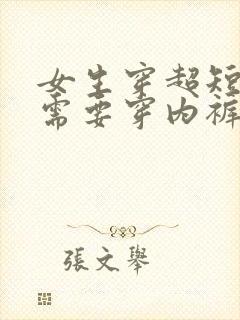 女生穿超短
需要穿内裤
張文舉